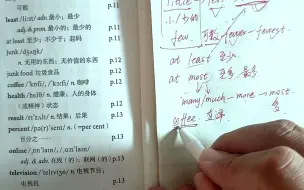 可能 p.11
least /liːst/ adv. 最小；最少
adj. & pron. 最小的；最少的 p.11
at least 至少；不少于；起码 p.11
junk /dʒʌŋk/
n. 无用的东西；无价值的东西 p.11
junk food 垃圾食品 p.11
coffee /ˈkɒfi/, /ˈkɔːfi/ n. 咖啡 p.11
health /helθ/ n. 健康；人的身体
（或精神）状态 p.11
result /rɪˈzʌlt/ n. 结果；后果 p.13
percent /pə(r)ˈsent/ n. (=per cent)
百分之…… p.13
online /ˌɒnˈlaɪn/, /ˌɔːnˈlaɪn/
adj. & adv. 在线（的）；联网（的） p.13
television /ˈtelɪvɪʒn/ n. 电视节目；
电视机 p.13
little
few fewer - fewest
at least 至少
at most 至多
many/much - more - most
coffee